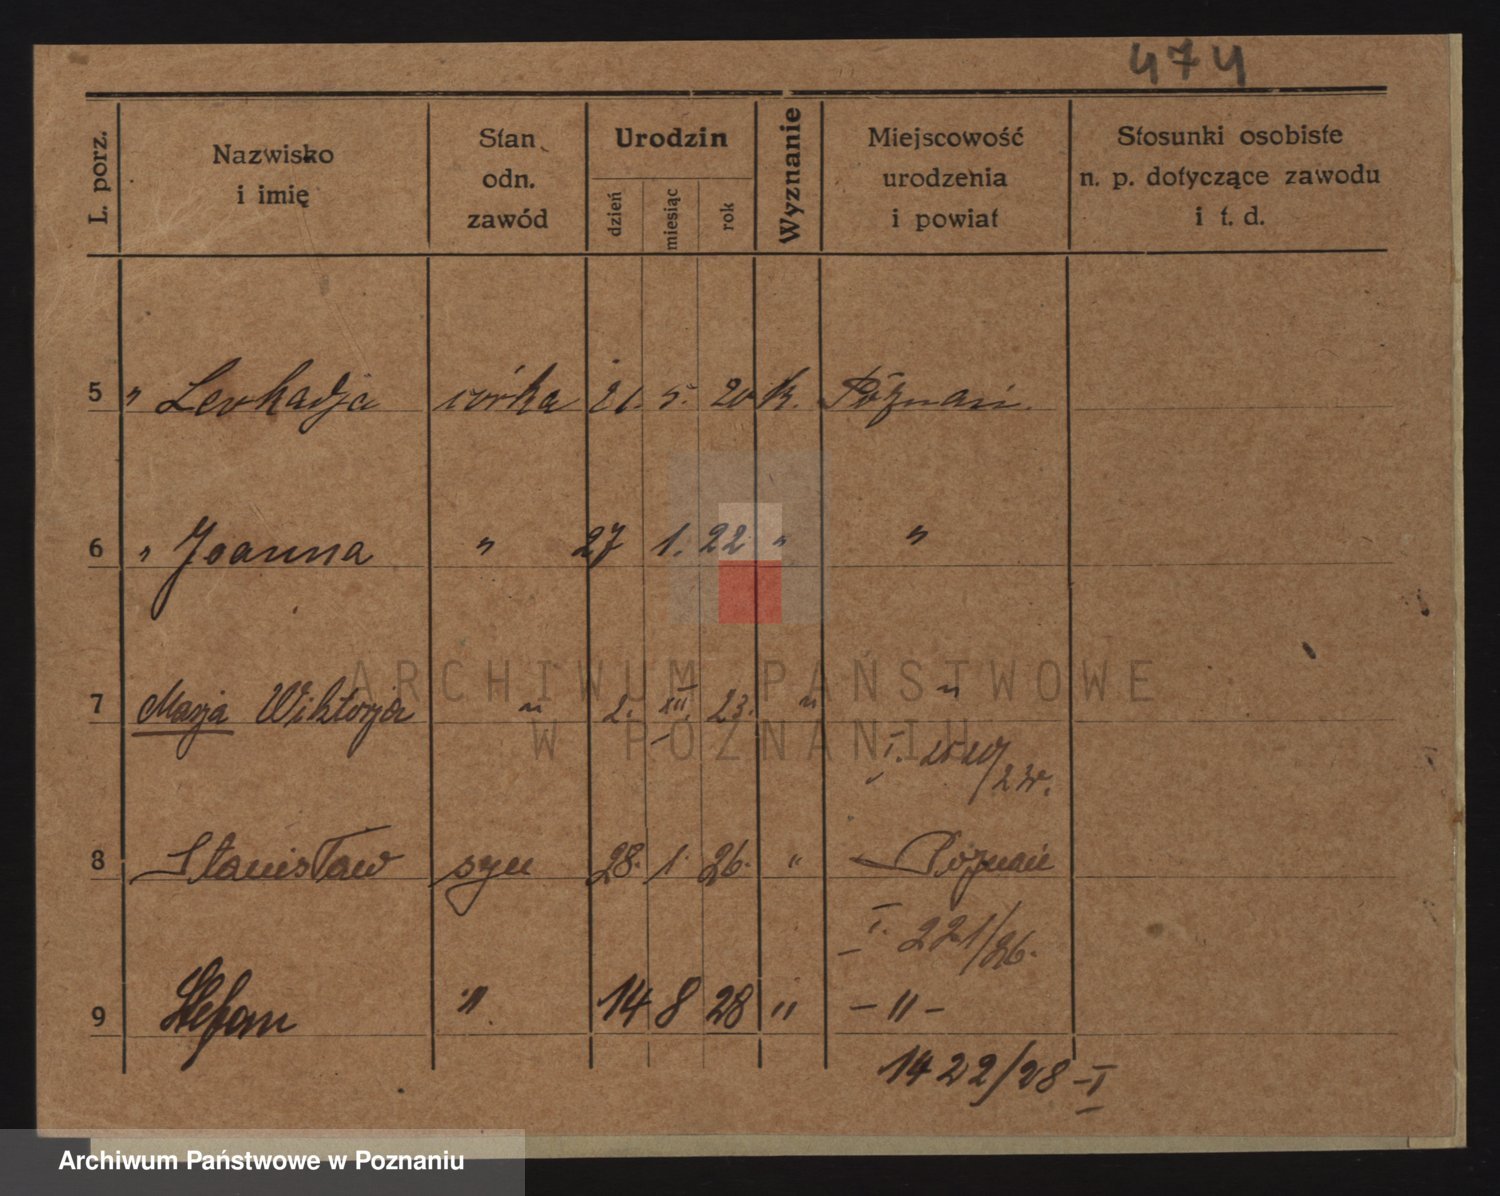 474
L. porz.
Nazwisko
i imię
Stan
odn.
zawód
Urodzin
dzień
miesiąc
rok
Wyznanie
Miejscowość
urodzenia
i powiat
Stosunki osobiste
n. p. dotyczące zawodu
i t. d.
5 " Leokadja córka 21. 5. 20 K. Poznań.
6 " Joanna " 27 1. 22 " "
7 Marja Wiktorja " 2. XII. 23. " "
I. 2520/23.
8 Stanisław syn 28. 1. 26. " Poznań
I. 221/26.
9 Stefan " 14 8 28 " - " -
1422/28-I
ARCHIWUM PAŃSTWOWE
W POZNANIU
Archiwum Państwowe w Poznaniu